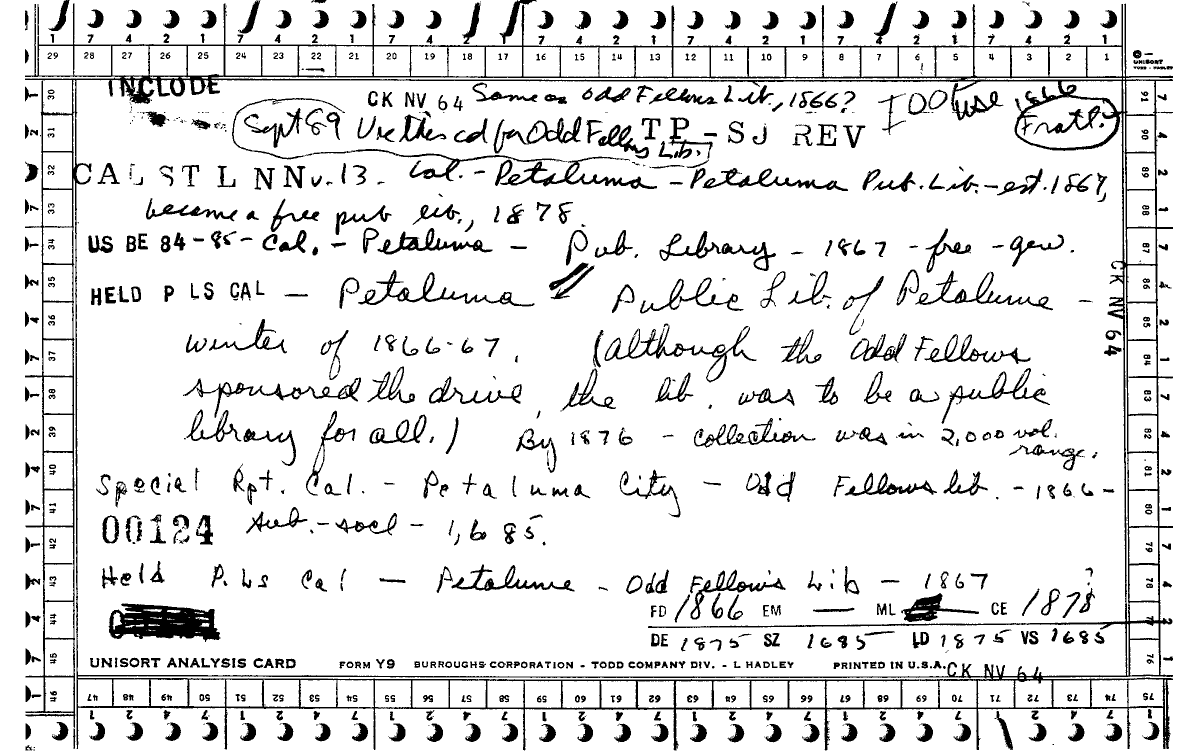 7 4 2 1 7 4 2 1 7 4 2 1 7 4 2 1 7 4 2 1 7 4 2 1
29 28 27 26 25 24 23 22 21 20 19 18 17 16 15 14 13 12 11 10 9 8 7 6 5 4 3 2 1
UNISORT
TODD - HADLEY
INCLUDE
CK NV 64 Same as Odd Fellows Lib., 1866? IOOF use 1866
Sept 89 Use this cd for Odd Fellows Lib. TP - SJ REV Fratl.
CAL ST L NN v. 13. Cal. - Petaluma - Petaluma Pub. Lib. - est. 1867,
became a free pub lib., 1878.
US BE 84-85 - Cal. - Petaluma - Pub. Library - 1867 - free - gen.
HELD P LS CAL - Petaluma Public Lib. of Petaluma -
CK NV 64
winter of 1866-67. (although the Odd Fellows
sponsored the drive, the lib. was to be a public
library for all.) By 1876 - collection was in 2,000 vol.
range.
Special Rpt. Cal. - Petaluma City - Odd Fellows lib. - 1866 -
00124 sub. - socl - 1,685.
Held P. Ls Cal - Petaluma - Odd Fellows Lib - 1867
FD 1866 EM — ML — CE 1878?
DE 1875 SZ 1685 LD 1875 VS 1685
UNISORT ANALYSIS CARD FORM Y9 BURROUGHS CORPORATION - TODD COMPANY DIV. - L HADLEY PRINTED IN U.S.A. CK NV 64
47 48 49 50 51 52 53 54 55 56 57 58 59 60 61 62 63 64 65 66 67 68 69 70 71 72 73 74 75